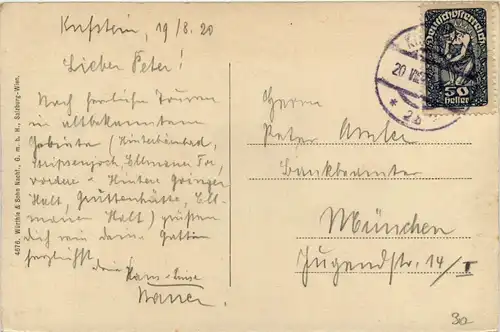 Kufstein, 19/8.20
Lieber Peter!
Nach herrlichen Touren
in altbekanntem
Gebiete (Hinterbärenbad,
Stripsenjoch, Ellmauer Tor,
vordere - Hintere Goinger
Halt, Gruttenhütte, Ell-
mauer Halt) grüßen
dich und deine Gattin
herzlichst
Hans - Luise
4676. Würthle & Sohn Nachf., G. m. b. H., Salzburg-Wien.
Deutschösterreich
50
Heller
20 VIII
* 2b
Herrn
Peter
Bankbeamter
München
Jugendstr. 14/I
30